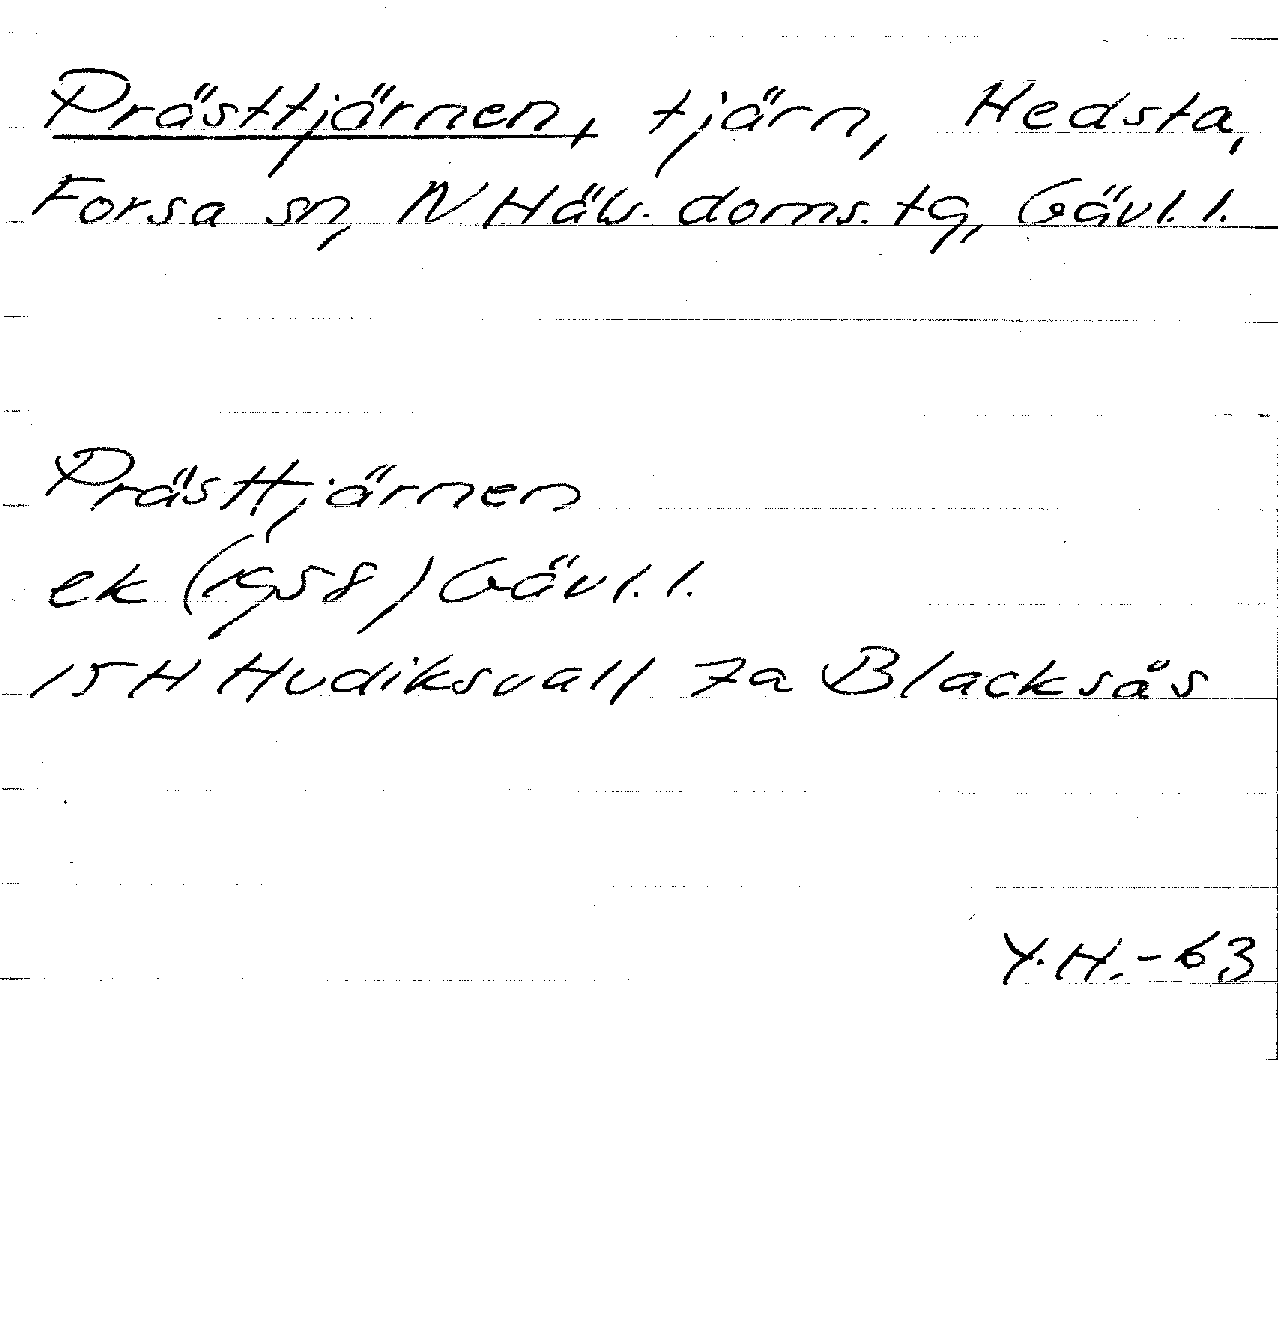 Prästtjärnen, tjärn, Hedsta,
Forsa sn, N Häls. doms. tg, Gävl. l.
Prästtjärnen
ek (1958) Gävl. l.
15H Hudiksvall 7a Blacksås
Y.H.-63